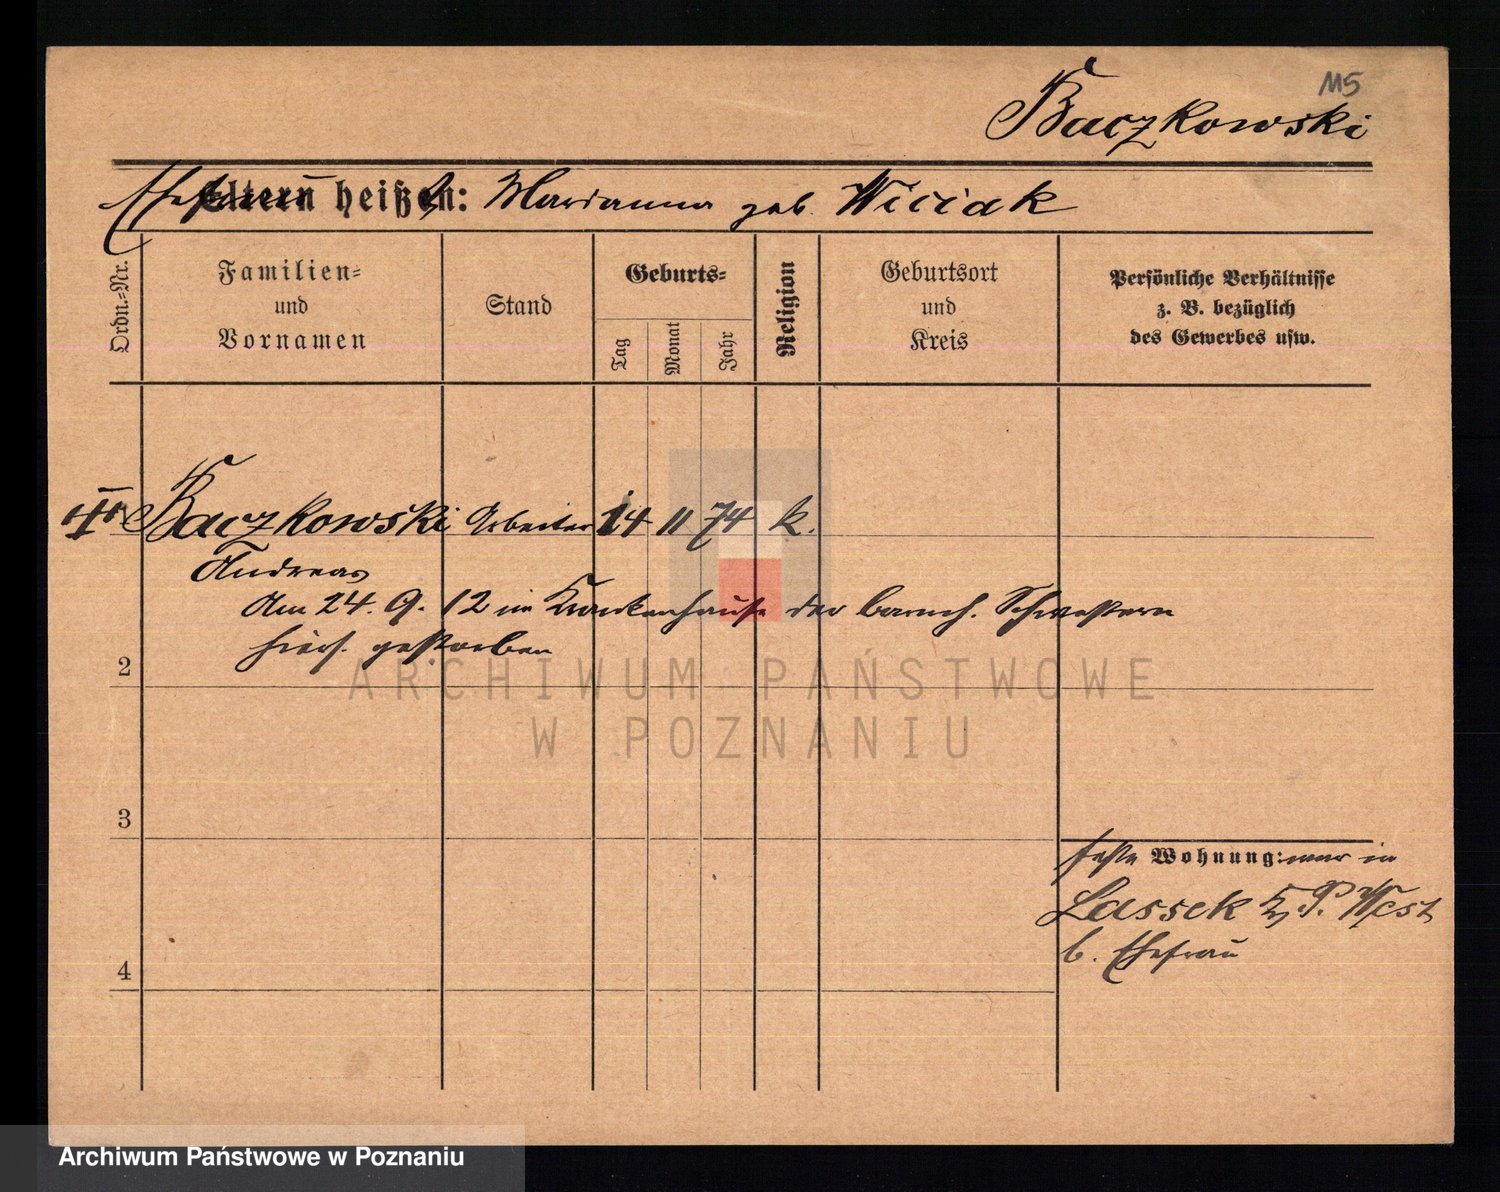 115
Baczkowski
Ehefrau Eltern heißen: Marianna geb. Wiciak
Ordn.-Nr.
Familien-
und
Vornamen
Stand
Geburts-
Tag
Monat
Jahr
Religion
Geburtsort
und
Kreis
Persönliche Verhältnisse
z. B. bezüglich
des Gewerbes usw.
Baczkowski Arbeiter 14 11 74 k.
Andreas
Am 24. 9. 12 im Krankenhause der barmh. Schwestern
hiers. gestorben
2
3
4
feste Wohnung: war in
Lassek Kr. P. West
b. Ehefrau
ARCHIWUM PAŃSTWOWE
W POZNANIU
Archiwum Państwowe w Poznaniu